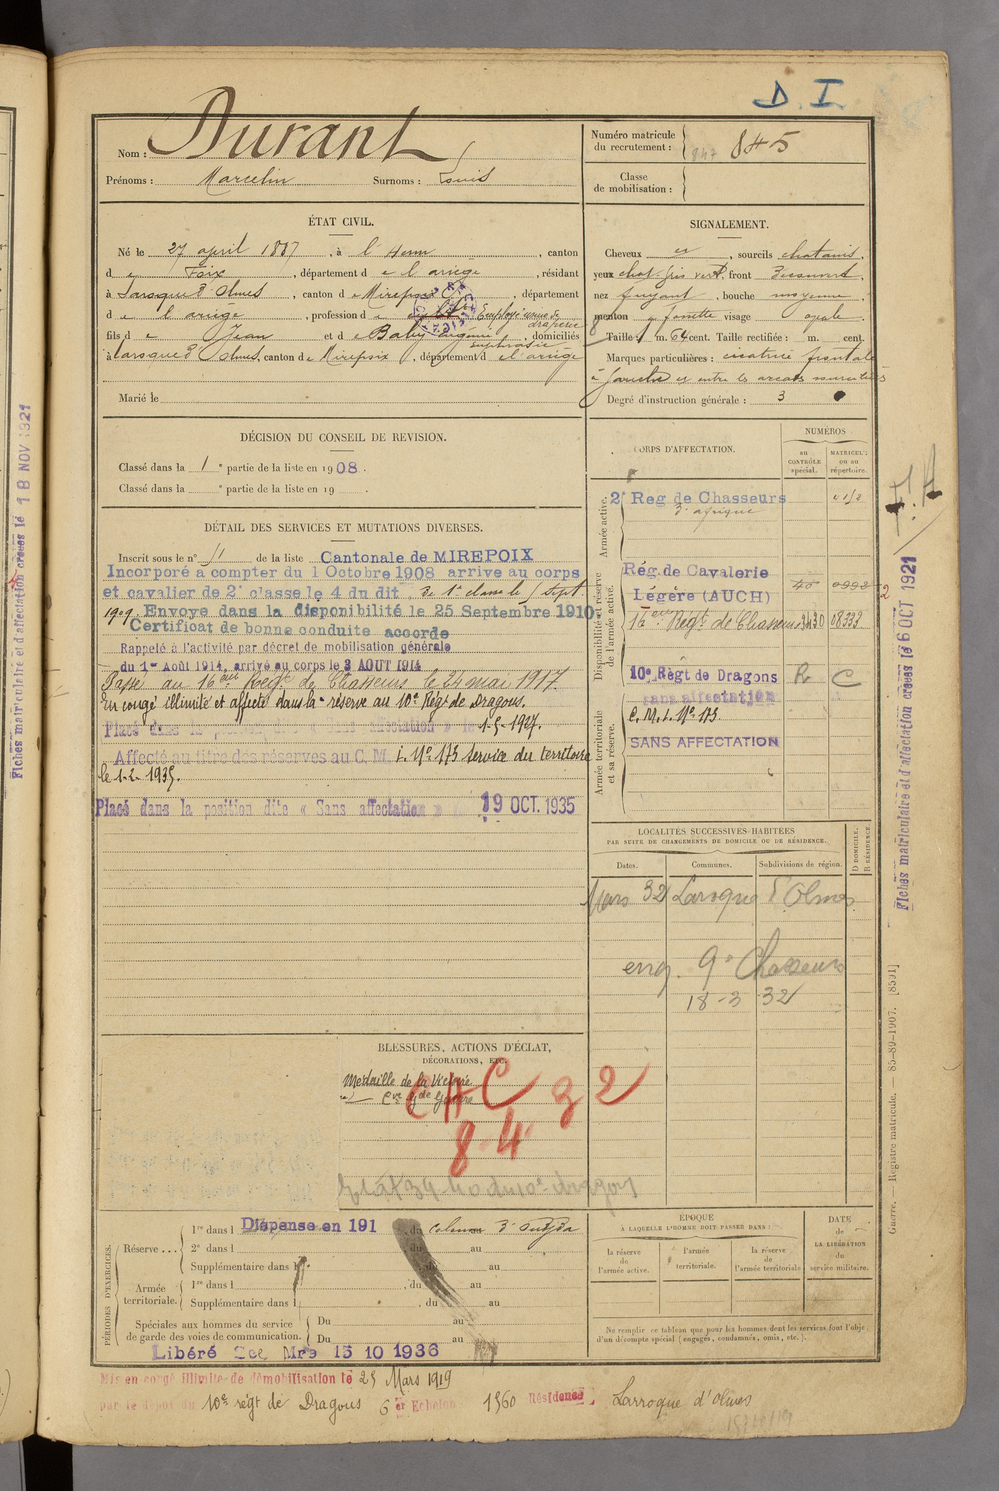 D. I.
Nom : Durant
Prénoms : Marcelin Surnoms : Louis
Numéro matricule
du recrutement : 847 845
Classe
de mobilisation :
ÉTAT CIVIL.
Né le 27 april 1887, à l'Herm, canton
d e Foix, département d e l'ariège, résidant
à Laroque d'Olmes, canton d e Mirepoix, département
d e l'ariège, profession d e Employé usine de
draperie
fils d e Jean et d e Baby, domiciliés
euphrasie
à Laroque d'Olmes, canton d e Mirepoix, département d e l'ariège
Marié le
SIGNALEMENT.
Cheveux et, sourcils chatains,
yeux chat. gris vert, front Découvert,
nez fuyant, bouche moyenne,
menton à fossette visage ovale.
Taille 1 m. 64 cent. Taille rectifiée : m. cent.
Marques particulières : cicatrice frontale
à gauche et entre les arcades sourcilières
Degré d'instruction générale : 3
DÉCISION DU CONSEIL DE REVISION.
Classé dans la 1e partie de la liste en 1908.
Classé dans la e partie de la liste en 19
DÉTAIL DES SERVICES ET MUTATIONS DIVERSES.
Inscrit sous le n° 51 de la liste Cantonale de MIREPOIX
Incorporé à compter du 1 Octobre 1908 arrivé au corps
et cavalier de 2e classe le 4 du dit. de 1e classe le 5 sept.
1909. Envoyé dans la disponibilité le 25 Septembre 1910.
Certificat de bonne conduite accordé
Rappelé à l'activité par décret de mobilisation générale
du 1er Août 1914, arrivé au corps le 3 AOUT 1914
Passé au 16ème Régt de Chasseurs le 24 mai 1917.
En congé illimité et affecté dans la réserve au 10e Régt de Dragons.
Placé dans la position « Sans affectation » le 1-5-1927.
Affecté au titre des réserves au C. M. I. N° 173 service du territoire
le 1-2-1935.
Placé dans la position dite « Sans affectation » 19 OCT. 1935
CORPS D'AFFECTATION.
NUMÉROS
au
CONTRÔLE
spécial.
MATRICULE
ou au
répertoire.
Armée active.
2e Reg de Chasseurs
d'afrique
Disponibilité et réserve
de l'armée active.
Rég. de Cavalerie
Légère (AUCH) 40 0992
16ème Régt de Chasseurs 3430 08333
10e Règt de Dragons R C
sans affectation
Armée territoriale
et sa réserve.
C. M. I. N° 173.
SANS AFFECTATION
LOCALITÉS SUCCESSIVES HABITÉES
PAR SUITE DE CHANGEMENTS DE DOMICILE OU DE RÉSIDENCE.
Dates. Communes. Subdivisions de région.
D DOMICILE.
R RÉSIDENCE.
Mars 32 Laroque d'Olmes
enq. 9e Chasseurs
18-3-32
BLESSURES, ACTIONS D'ÉCLAT,
DÉCORATIONS, ETC.
Médaille de la Victoire
CHC 32
8.4.
PÉRIODES D'EXERCICES.
Réserve ... 1re dans l Dispensé en 191 du
2e dans l du au
Supplémentaire dans l du au
Armée
territoriale. 1re dans l , du au
Supplémentaire dans l , du au
Spéciales aux hommes du service
de garde des voies de communication. Du au
Du au
Libéré Sce Mre 15 10 1936
ÉPOQUE
À LAQUELLE L'HOMME DOIT PASSER DANS :
la réserve
de
l'armée active.
l'armée
territoriale.
la réserve
de
l'armée territoriale
DATE
de
LA LIBÉRATION
du
service militaire.
Ne remplir ce tableau que pour les hommes dont les services font l'objet
d'un décompte spécial (engagés, condamnés, omis, etc.).
Mis en congé illimité de démobilisation le 25 Mars 1919
par le dépôt du 10e régt de Dragons 6e Echelon 1560 Résidence Larroque d'olmes
Fiches matriculaire et d'affectation créées le 18 NOV 1921
Fiches matriculaire et d'affectation créées le 6 OCT 1921
Guerre. — Registre matricule. — 85-80-1907. [8591]